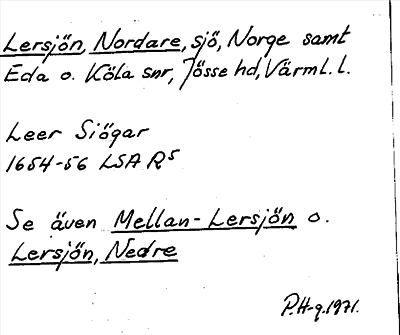 Lersjön, Nordare, sjö, Norge samt
Eda o. Köla snr, Jösse hd, Värml. l.
Leer Siögar
1654-56 LSA R5
Se även Mellan-Lersjön o.
Lersjön, Nedre
P.H-g. 1971.